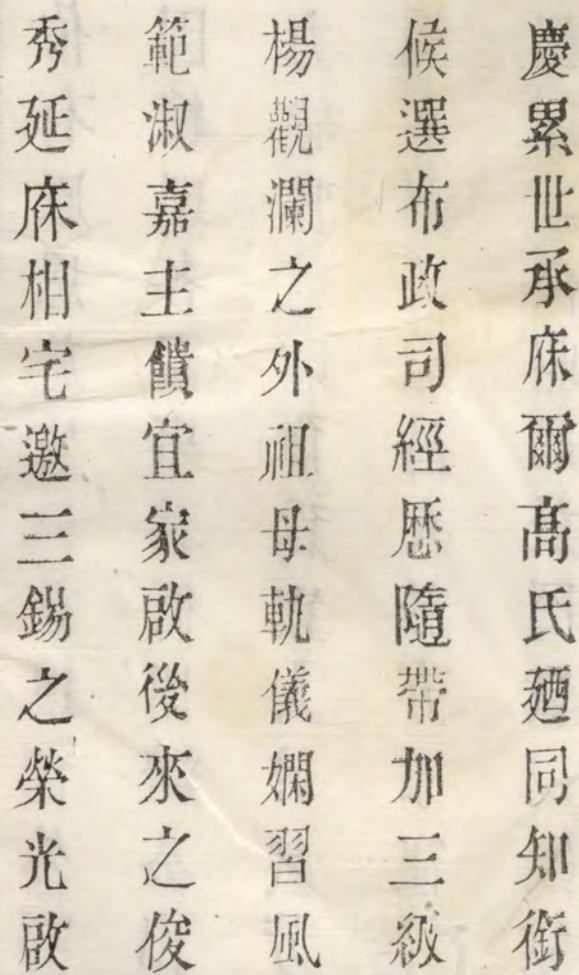 慶累世承庥爾高氏廼同知銜
候選布政司經歷隨帶加三級
楊觀瀾之外祖母軌儀嫻習風
範淑嘉主饋宜家啟後來之俊
秀延庥相宅邀三錫之榮光啟